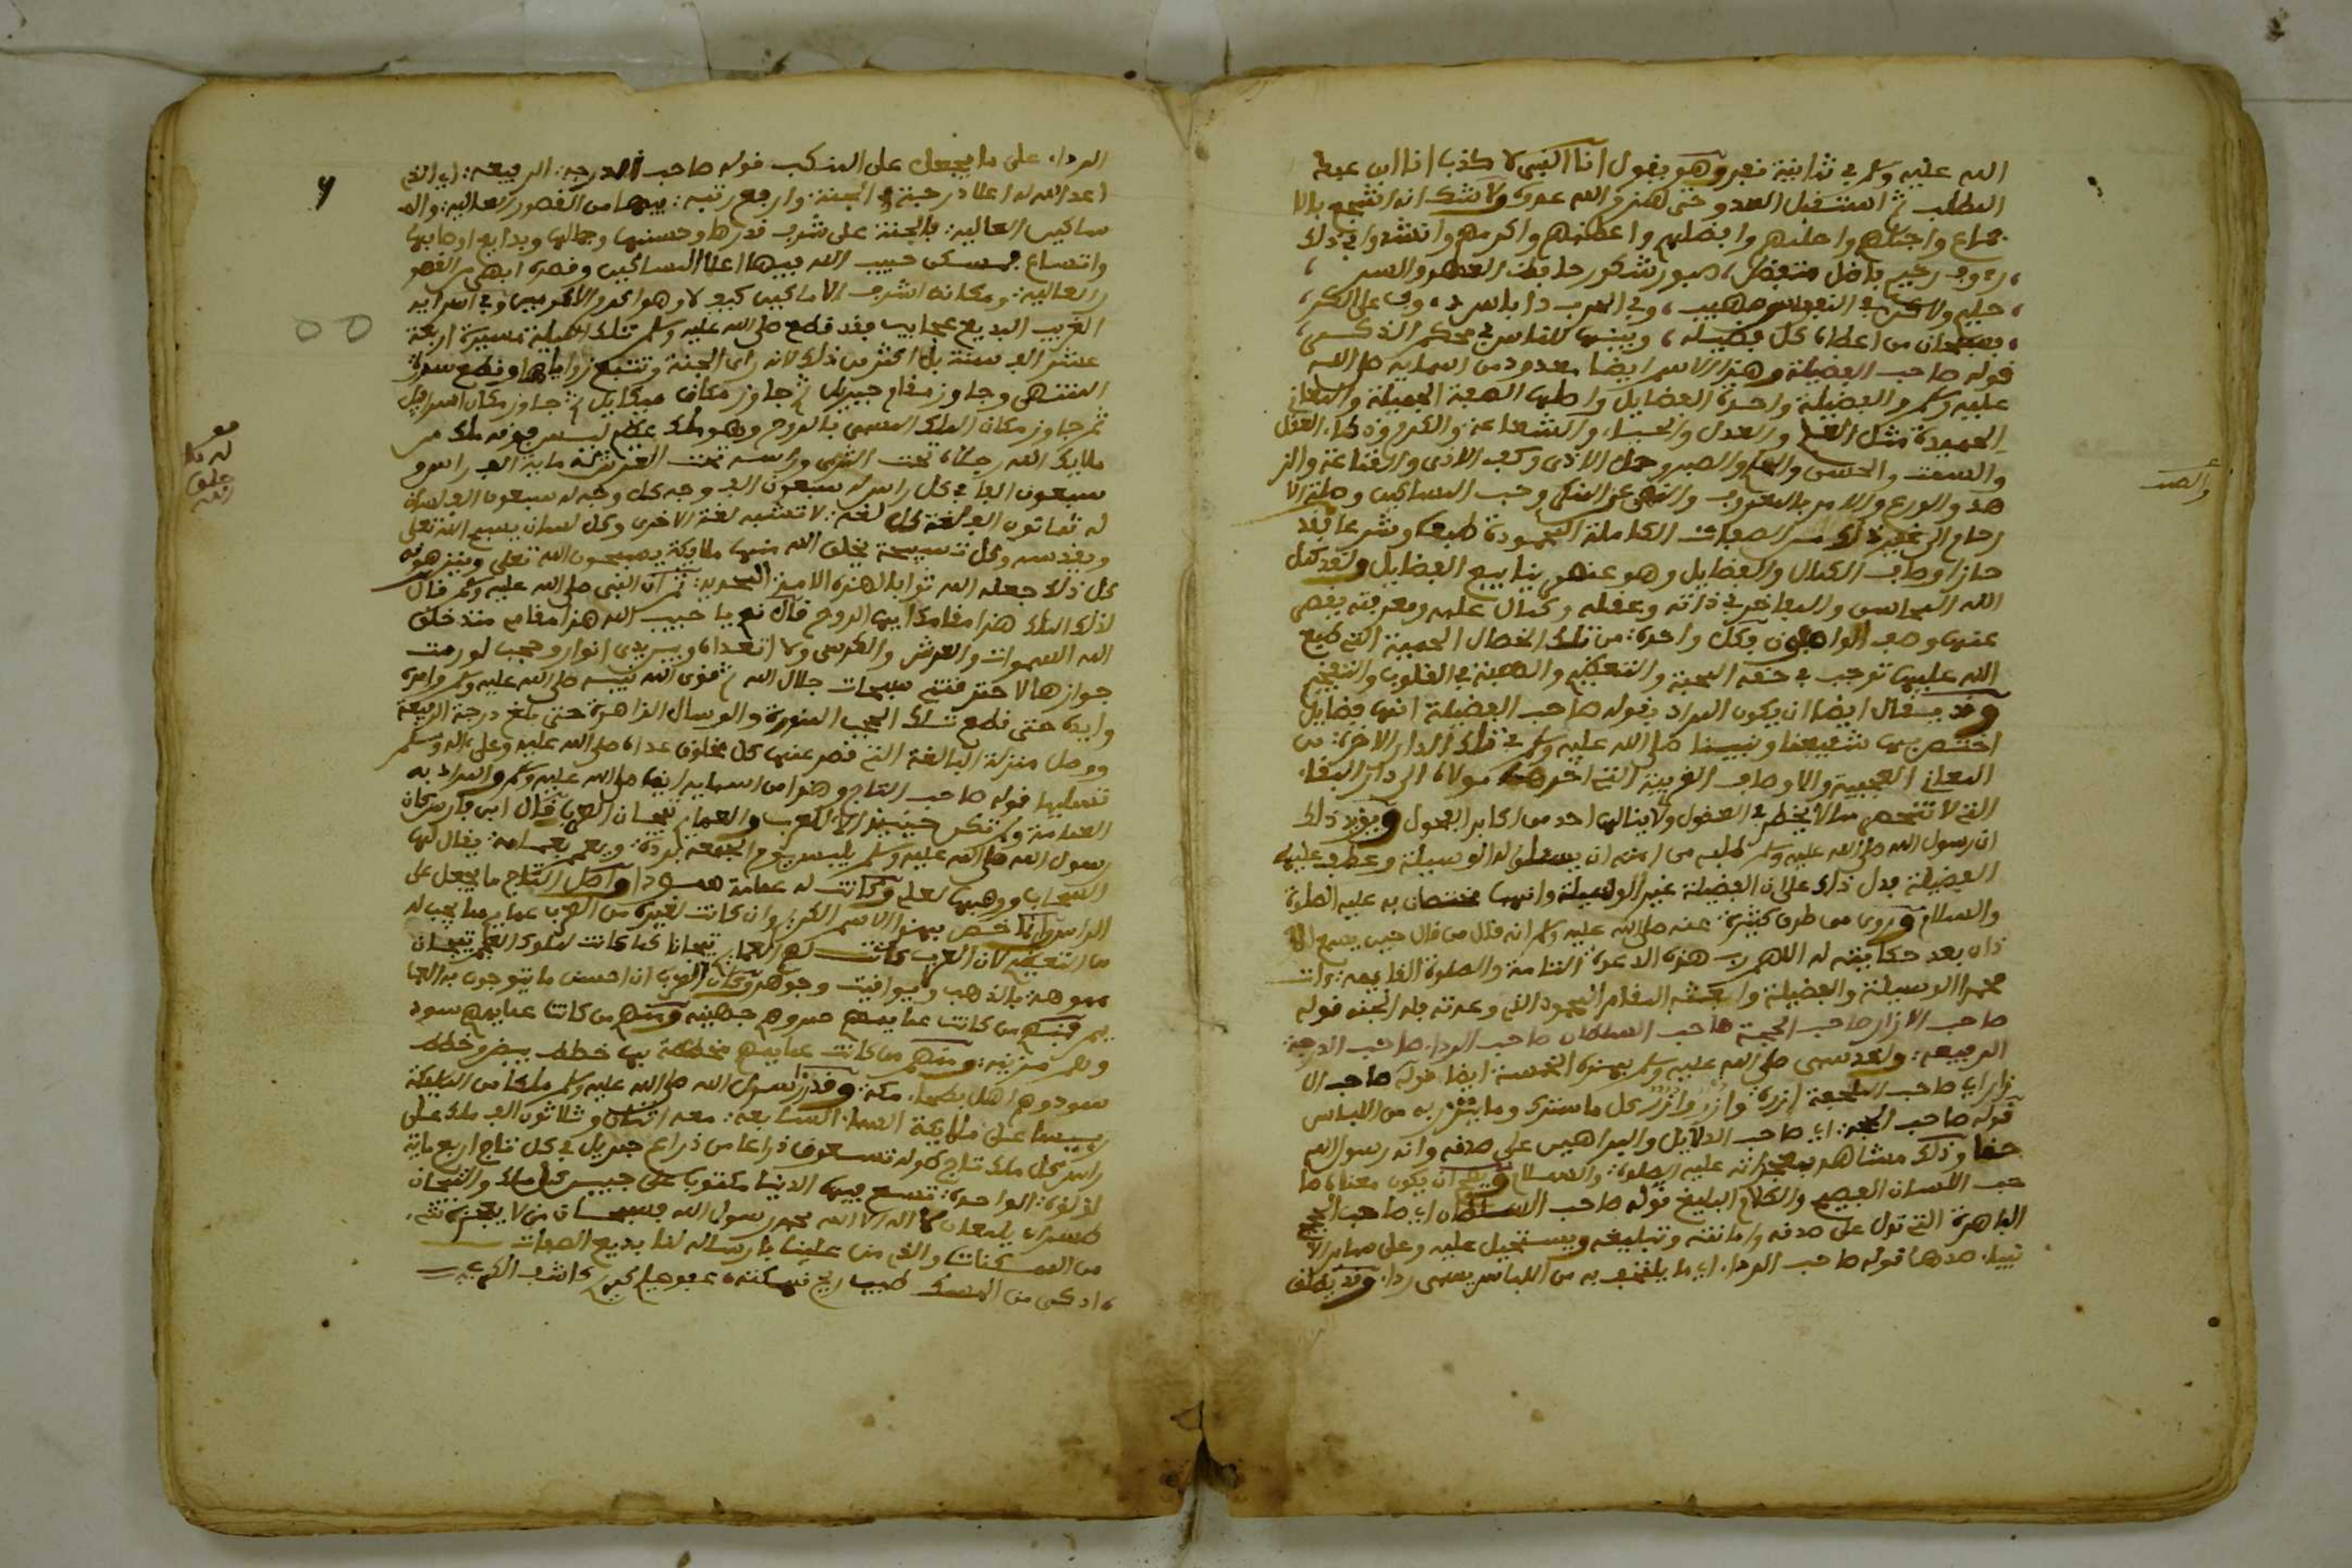 الله عليه وسلم في ثمانية نفر وهو يقول انا النبي لا كذب انا ابن عبد
المطلب ثم استقبل العدو حتى هزم والله عدوه ولا شك انه اشجع بالا
جماع واجملهم واحلمهم وافضلهم واعظمهم واكرمهم وانشدوا في ذلك
رءوف رحيم فاضل متفضل صبور شكور حافظ العهد والسر
حليم ولاكن في النفوس مهيب وفي الحرب
فسبحان من اعطاه كل فضيلة وبينها للناس في محكم الذكر
قوله صاحب الفضيلة وهذا الاسم ايضا معدود من اسمايه صلى الله
عليه وسلم والفضيلة واحدة الفضايل واصلها الصفة الجميلة والمعاني
الحميدة مثل العلم والعدل والحياء والشجاعة والكرم وذكاء العقل
والسمت والحسن والحلم والصبر وحمل الاذى وكف الاذى والقناعة والز
هد والورع والامر بالمعروف والنهي عن المنكر وحب المساكين وصلة الا
رحام الى غير ذلك من الصفات الكاملة المحمودة طبعا وشرعا فقد
حاز اوصاف الكمال والفضايل وهو عنصر ينابيع الفضايل ولقد كمل
الله المحاسن والمفاخر في ذاته وعقله وكمال علمه ومعرفته يقصر
عنها وصف الواصفون وكل واحدة من تلك الخصال الحميدة التي طبع
الله عليها توجب في حقه المحبة والتعظيم والهيبة في القلوب والتفخيم
وقد يقال ايضا ان يكون المراد بقوله صاحب الفضيلة انها فضايل
اختص بها شفيعنا ونبينا صلى الله عليه وسلم في تلك الدار الاخرة من
المعاني العجيبة والاوصاف الغريبة التي اخرها مولاه الى دار البقاء
التي لا تنحصر مما لا يخطر في العقول ولا ينالها احد من اكابر الفحول ويؤيد ذلك
ان رسول الله صلى الله عليه وسلم طلب من امته ان يسئلوا له الوسيلة وعطف عليها
الفضيلة فدل ذلك على ان الفضيلة غير الوسيلة وانهما مختصان به عليه الصلوة
والسلام وروي من طرق كثيرة عنه صلى الله عليه وسلم انه قال من قال حين يسمع الا
ذان بعد حكايته له اللهم رب هذه الدعوة التامة والصلوة القايمة ءات
محمدا الوسيلة والفضيلة وابعثه المقام المحمود الذي وعدته فله الجنة قوله
صاحب الازار صاحب الحجة صاحب السلطان صاحب الرداء صاحب الدرجة
الرفيعة ولقد سمي صلى الله عليه وسلم بهذه الخمسة ايضا قوله صاحب الا
زار اي صاحب الملحفة ازرة وازر وازر كل ما سترك وما يتزر به من اللباس
قوله صاحب الحجة اي صاحب الدلايل والبراهين على صدقه وانه رسول الله
حقا وذلك مشاهد بمعجزاته عليه الصلوة والسلام ويصح ان يكون معناه صا
حب اللسان الفصيح والكلام البليغ قوله صاحب السلطان اي صاحب الحجج
الباهرة التي تدل على صدقه وامانته وتبليغه ويستحيل عليه وعلى ساير الا
نبياء ضدها قوله صاحب الرداء اي ما يلتحف به من اللباس يسمى رداء وقد يطلق
والصبر
الرداء على ما يجعل على المنكب قوله صاحب الدرجة الرفيعة اي الذي
اعد الله له اعلا درجة في الجنة وارفع رتبة فيها من القصور العالية والم
ساكين العالية فالجنة على شرف قدرها وحسنها وجمالها وبدايع اوصافها
واتساع مسكن حبيب الله فيها اعلا المساكين وقصره ابهى من القصو
ر العالية ومكانه اشرف الاماكين كيف لا وهو اكرم الاكرمين وفي اسرايه
الغريب البديع عجايب فقد قطع صلى الله عليه وسلم تلك الليلة مسيرة اربعة
عشر الف سنة بل اكثر من ذلك لانه راى الجنة وتتبع زواياها وقطع سدرة
المنتهى وجاوز مقام جبريل ثم جاوز مكان ميكايل ثم جاوز مكان اسرافيل
ثم جاوز مكان الملك المسمى بالروح وهو ملك عظيم ليس فوقه ملك من
ملايكة الله رجلاه تحت الثرى وراسه تحت العرش له ماية الف راس و
سبعون الفا في كل راس له سبعون الف وجه كل وجه له سبعون الف لسان
له ثمانون الف لغة كل لغة لا تشبه لغة الاخرى وكل لسان يسبح الله تعلى
ويقدسه وكل تسبيحة يخلق الله منها ملايكة يسبحون الله تعلى وينزهونه
كل ذلك جعله الله ثوابا لهذه الامة المحمدية ثم ان النبي صلى الله عليه وسلم قال
لذلك الملك هذا مقامك ايها الروح قال نعم يا حبيب الله هذا مقامي منذ خلق
الله السموات والعرش والكرسي ولا اتعداه وبين يدي انوار وحجب لو رمت
جوازها لاحترقت من سبحات جلال الله ثم قوى الله نبيه صلى الله عليه وسلم وامده
وايده حتى قطع تلك الحجب المنورة والوسال الزاهرة حتى بلغ درجة الرفيعة
ووصل منزلة البالغة التي قصر عنها كل مخلوق عداه صلى الله عليه وعلى ءاله وسلم
تسليما قوله صاحب التاج وهذا من اسمايه ايضا صلى الله عليه وسلم والمراد به
العمامة ولم تكن حينيذ الا للعرب والعمايم تيجان العرب قال ابن فارس كان
رسول الله صلى الله عليه وسلم يلبس يوم الجمعة بردة ويعمم بعمامة يقال لها
السحاب ووهبها لعلي وكانت له عمامة سودا واصل التاج ما يجعل على
الراس وانما خص بهذا الاسم الكريم وان كانت لغيره من العرب عمايم لما يجب له
من التعظيم لان العرب كانت لهم العمايم تيجانا كما كانت لملوك العجم تيجان
مموهة بالذهب واليواقيت وجوهر وكان العرب ان احسن ما يتوجون به العما
يم فمنهم من كانت عمايمهم حمر وهم جهينة ومنهم من كانت عمايمهم سود
وهم مزينة ومنهم من كانت عمايمهم مخططة بها خطط بيض وخطط
سود وهم اهل بطحاء مكة وقد زار رسول الله صلى الله عليه وسلم ملكا من المليكة
رييسا على ملايكة السماء السابعة معه اثنان وثلاثون الف ملك على
راس كل ملك تاج طوله تسعون ذراعا من ذراع جبريل في كل تاج اربع ماية
لؤلؤة الواحدة تسع فيها الدنيا مكتوب على جبين كل ملك والتيجان
لا اله الا الله محمد رسول الله فسبحان من لا يعجزه شيء
من الممكنات والذي من علينا بارساله لنا بديع الصفات
اذكى من المسك طيب ريح نكهته